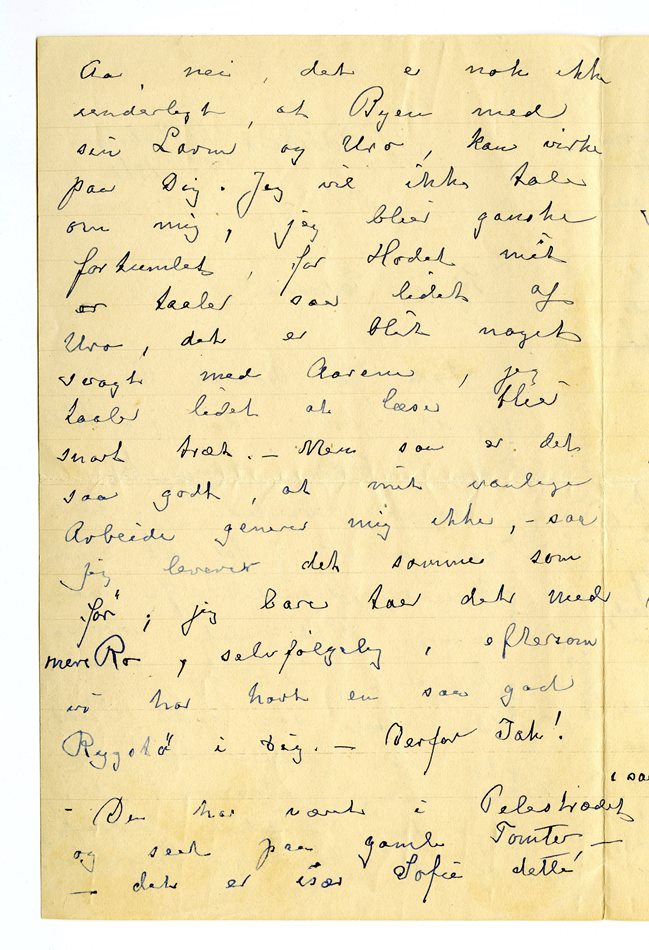 Aa, nei, det er nok ikke
underligt, at Byen med
sin Larm og Uro, kan virke
paa Dig. Jeg vil ikke tale
om mig, jeg blier ganske
fortumlet, for Hodet mit
er taaler saa lidet af
Uro, det er blit noget
svagt med Aarene, jeg
taaler lidet at læse blier
snart træt. – Men saa er det
saa godt, at mit vanlige
Arbeide generer mig ikke, – saa
jeg leverer det samme som
før, jeg bare taer det med
mere Ro, selvfølgelig, eftersom
vi har havt en saa god
Rygstø i Dig. – Derfor Tak!
i saa
– Du har været i Pelestrædet
og seet paa gamle Tomter, –
– det er især Sofie dette